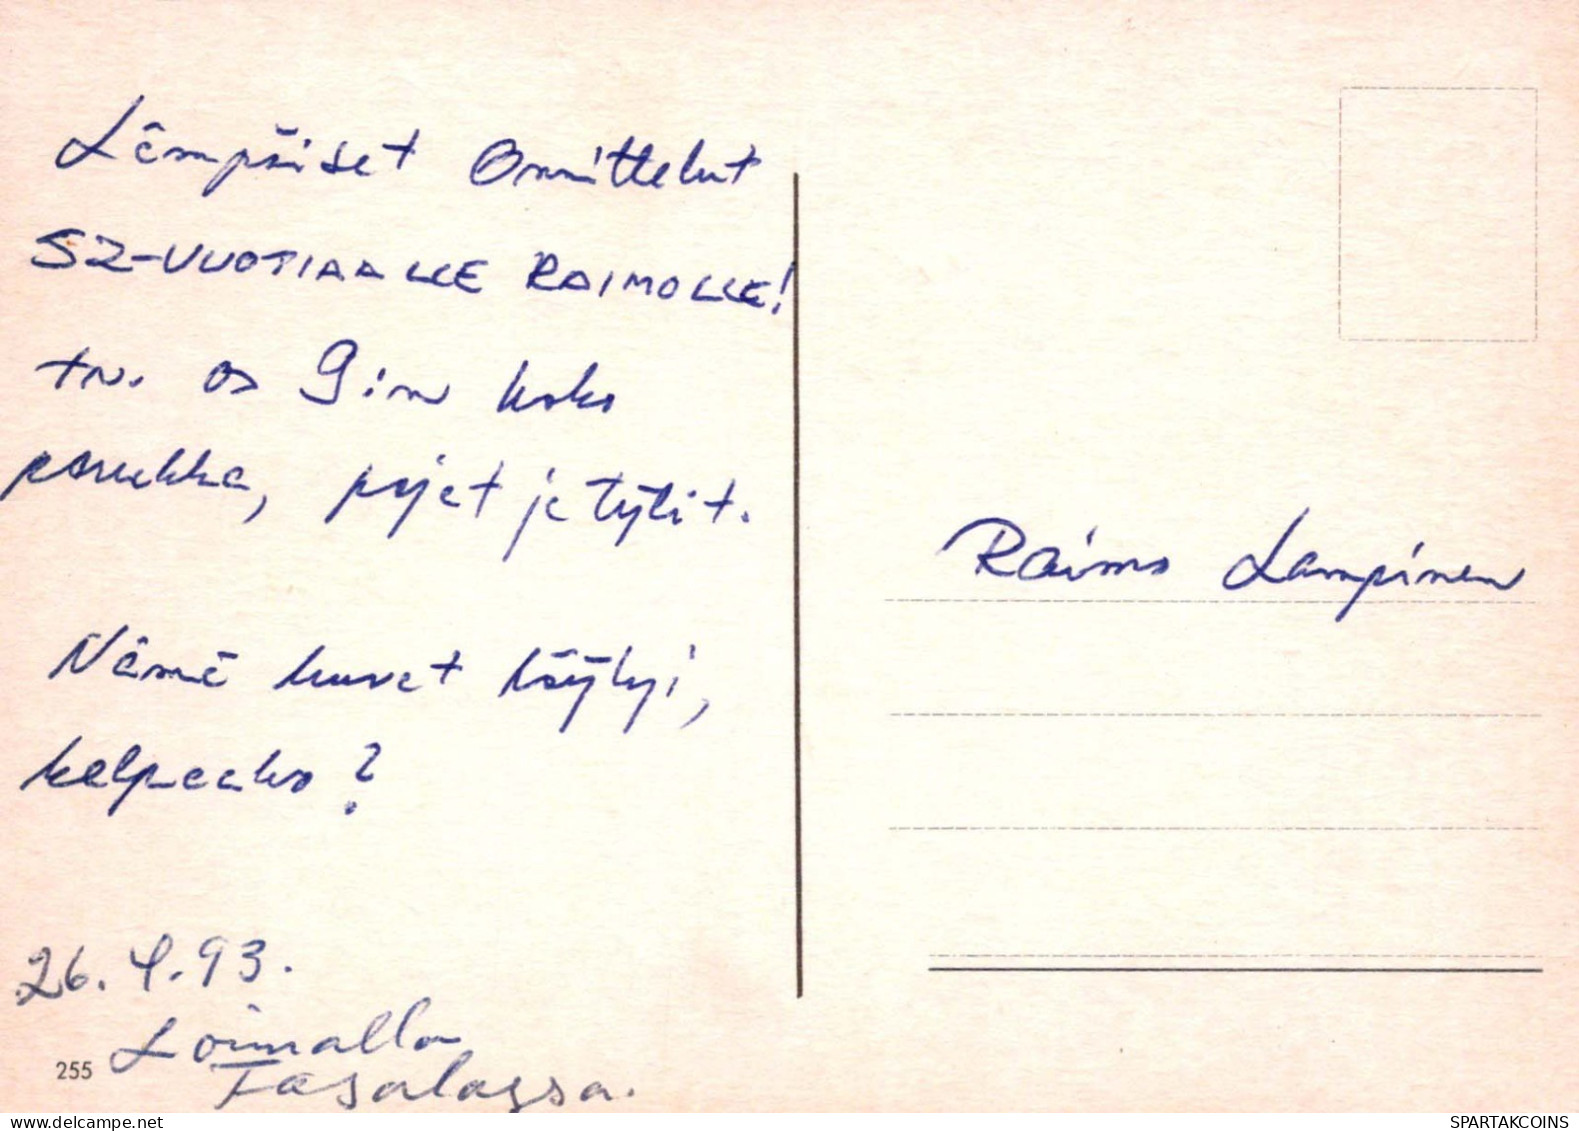 Lämpöiset Onnittelut
52-VUOTIAALLE RAIMOLLE!
tv. os 9:n koko
porukka, pojat ja tytöt.
Nämä kuvat käytyi,
kelpaako?
26.4.93.
Loimalla
Tasalassa.
255
Raimo Lampinen
www.delcampe.net
SPARTAKCOINS